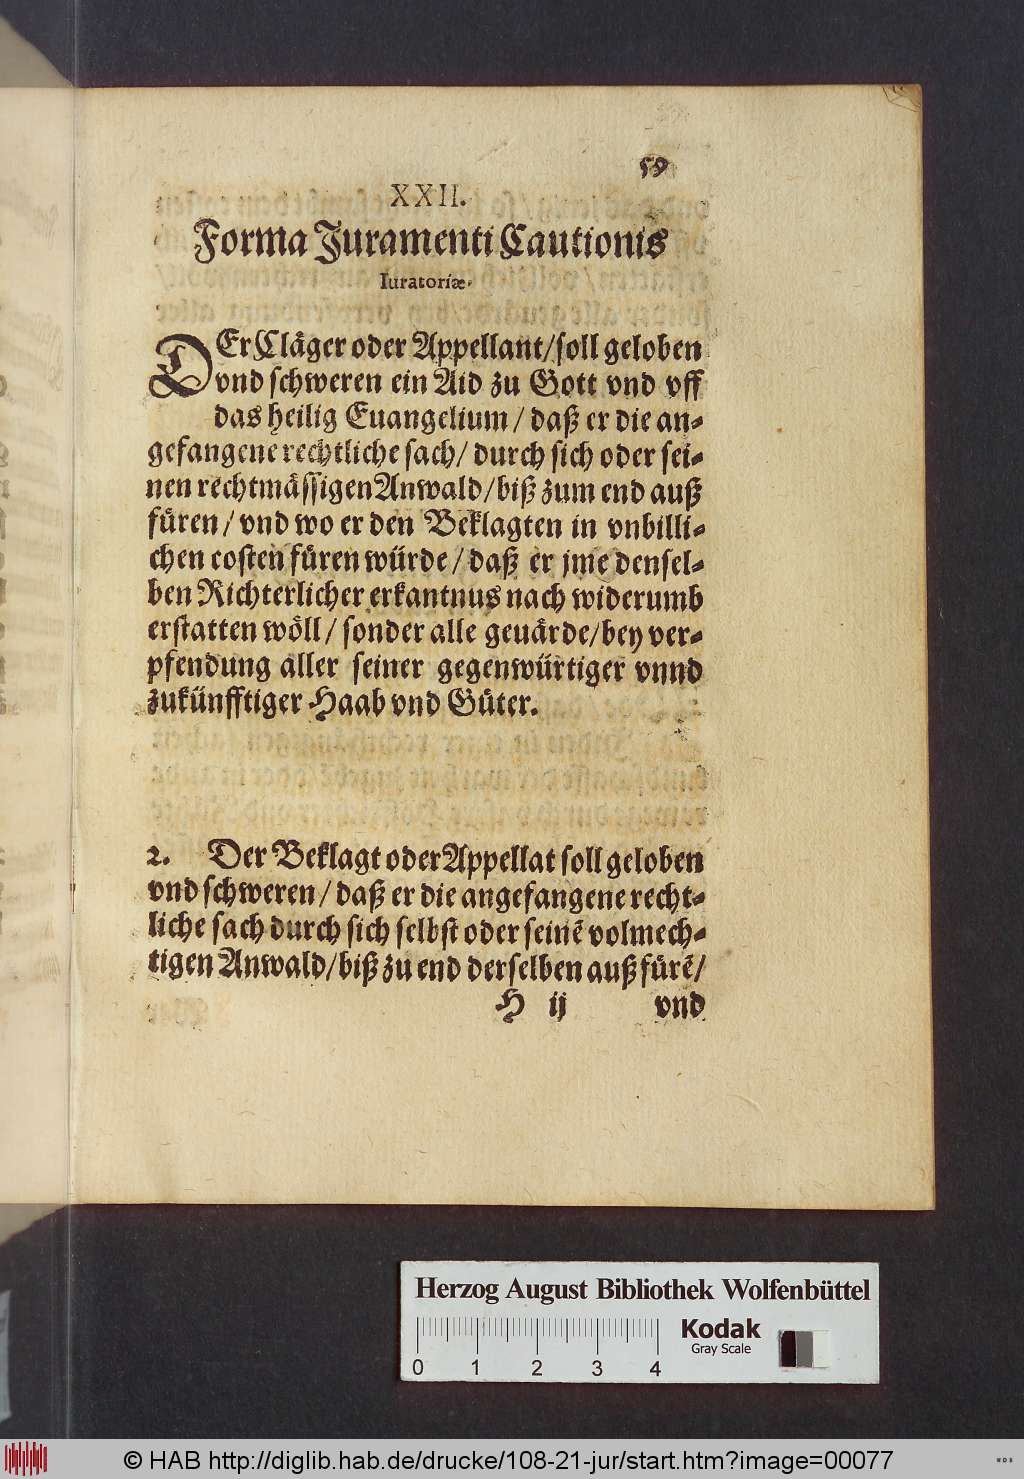 59
XXII.
Forma Juramenti Cautionis
Iuratoriæ.
DEr Cläger oder Appellant/ soll geloben
vnd schweren ein Aid zu Gott vnd vff
das heilig Euangelium / daß er die an-
gefangene rechtliche sach/ durch sich oder sei-
nen rechtmässigen Anwald/ biß zum end auß
füren / vnd wo er den Beklagten in vnbilli-
chen costen füren würde / daß er jme densel-
ben Richterlicher erkantnus nach widerumb
erstatten wöll / sonder alle geuärde/ bey ver-
pfendung aller seiner gegenwürtiger vnnd
zukünfftiger Haab vnd Güter.
2. Der Beklagt oder Appellat soll geloben
vnd schweren / daß er die angefangene recht-
liche sach durch sich selbst oder seinē volmech-
tigen Anwald/ biß zu end derselben auß fürē/
H ij vnd
Herzog August Bibliothek Wolfenbüttel
0 1 2 3 4
Kodak
Gray Scale
© HAB http://diglib.hab.de/drucke/108-21-jur/start.htm?image=00077